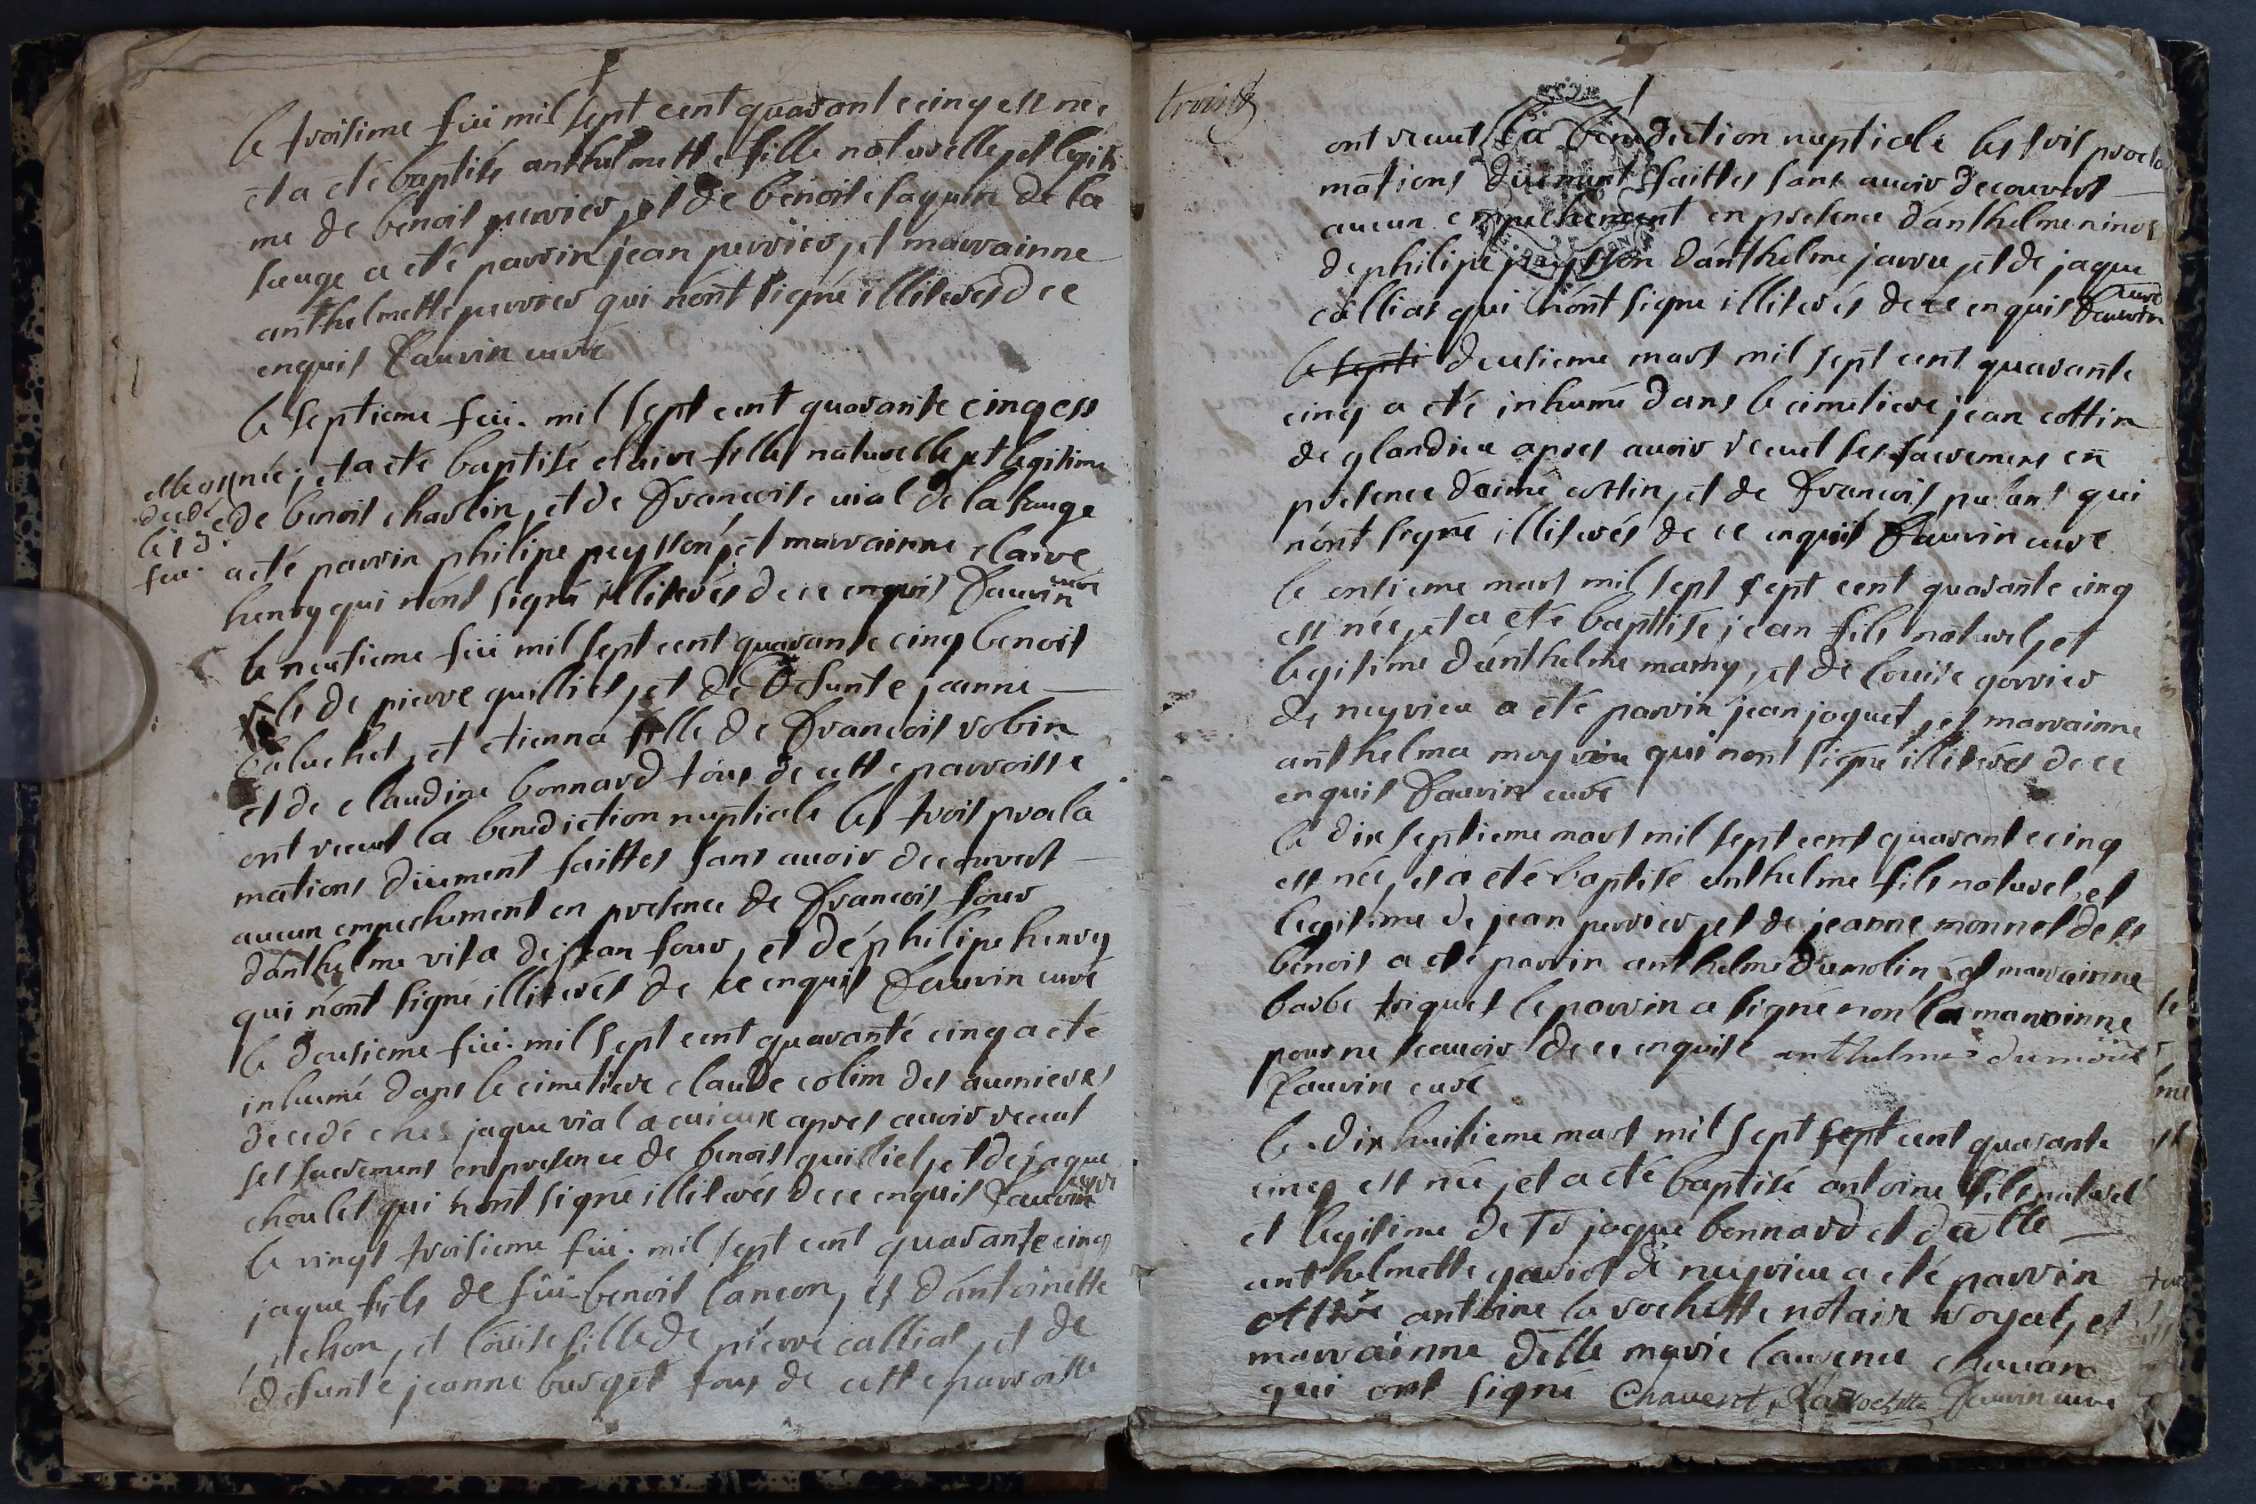 le troisime fév mil sept cent quarante cinq est née
et a été baptisé anthelmette fille naturelle, et legiti
me de benoit perrier, et de benoite jaquin de la
sauge a été parrin jean perrier, et marrainne
anthelmette perrier qui n'ont signé illiterés de ce
enquis fauvin curé
le septieme fév. mil sept cent quarante cinq est
née, et a été baptisé claire fille naturelle et legitime
de benoit charlin, et de francoise vial de la sauge
a été parrin philipe peysson, et marrainne claire
henry qui n'ont signé illiterés de ce enquis fauvin curé
elle est
decedé
le 13
fév.
le neufieme fév mil sept cent quarante cinq benoit
fils de pierre quilliet, et de defunte jeanne
baluchet, et etienna fille de francois robin
et de claudine bonnard tous de cette parroisse
ont receut la benediction nuptiale les trois procla
mations diument faittes sans avoir decouvert
aucun empechement en presence de francois four
d'anthelme vita de jean four, et de philipe henry
qui n'ont signé illiterés de ce enquis fauvin curé
le deusieme fév. mil sept cent quarante cinq a été
inhumé dans le cimetiere claude colim des avenieres
decedé chez jaque vial a cuieux apres avoir receut
ses sacremens en presence de benoit quilliet, et de jaque
choulet qui n'ont signé illiterés de ce enquis fauvin curé
le vingt troisieme fév. mil sept cent quarante cinq
jaque fils de feu benoit lancon, et d'antoinette
pichon, et louise fille de pierre calliat, et de
defunte jeanne burget tous de cette parroisse
ont receut la benediction nuptiale les trois procla
mations diument faittes sans avoir decouvert
aucun empechement en presence d'anthelme ninet
de philipe peysson d'anthelme jarru, et de jaque
calliat qui n'ont signé illiterés de ce enquis fauvin curé
le septi deusieme mars mil sept cent quarante
cinq a été inhumé dans le cimetiere jean cottin
de glandieu apres avoir receut ses sacremens en
presence d'aimé cottin, et de francois pulant qui
n'ont signé illiterés de ce enquis fauvin curé
le onsieme mars mil sept sept cent quarante cinq
est née, et a été baptisé jean fils naturel, et
legitime d'anthelme mamy, et de louise gorrier
de neyrieu a été parrin jean jaquet, et marrainne
anthelma moyroux qui n'ont signé illiterés de ce
enquis fauvin curé
le dix septieme mars mil sept cent quarante cinq
est née, et a été baptisé anthelme fils naturel, et
legitime de jean perrier, et de jeanne monnet de st
benoit a été parrin anthelme dumolin, et marrainne
barbe triquet le parrin a signé non la marrainne
pour ne scavoir de ce enquise anthelme dumolin
fauvin curé
le dix huitieme mars mil sept sept cent quarante
cinq est née, et a été baptisé antoine fils naturel
et legitime de sr jaque bonnard et d'alle
anthelmette gariot de neyrieu a été parrin
antoine la rochette notair royal, et
marrainne delle marie laurence chauvan
qui ont signé Chauvent, Larochette fauvin curé